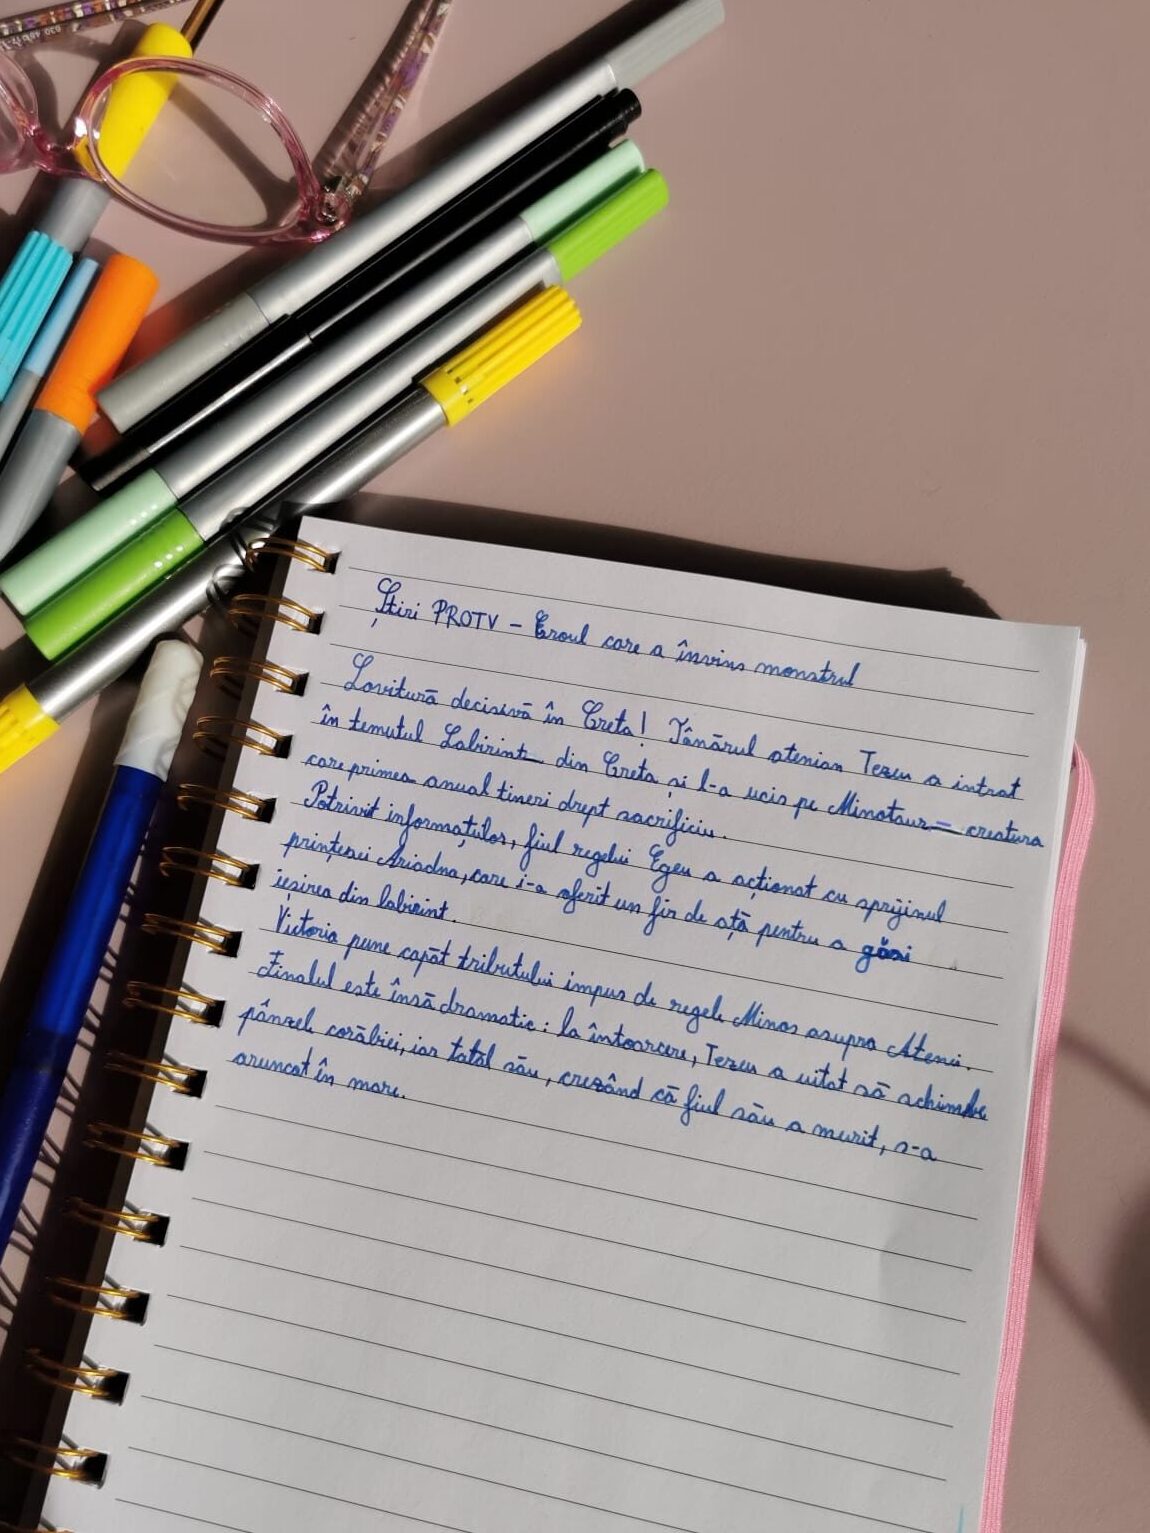 Știri PROTV – Eroul care a învins monstrul
Lovitură decisivă în Creta! Tânărul atenian Tezeu a intrat
în temutul Labirint din Creta și l-a ucis pe Minotaur – creatura
care primea anual tineri drept sacrificiu.
Potrivit informațulor, fiul regelui Egeu a acționat cu sprijinul
prințesei Ariadna, care i-a oferit un fir de ață pentru a găsi
ieșirea din labirint.
Victoria pune capăt tributului impus de regele Minos asupra Atenei.
Finalul este însă dramatic: la întoarcere, Tezeu a uitat să schimbe
pânzele corăbiei, iar tatăl său, crezând că fiul său a murit, s-a
aruncat în mare.